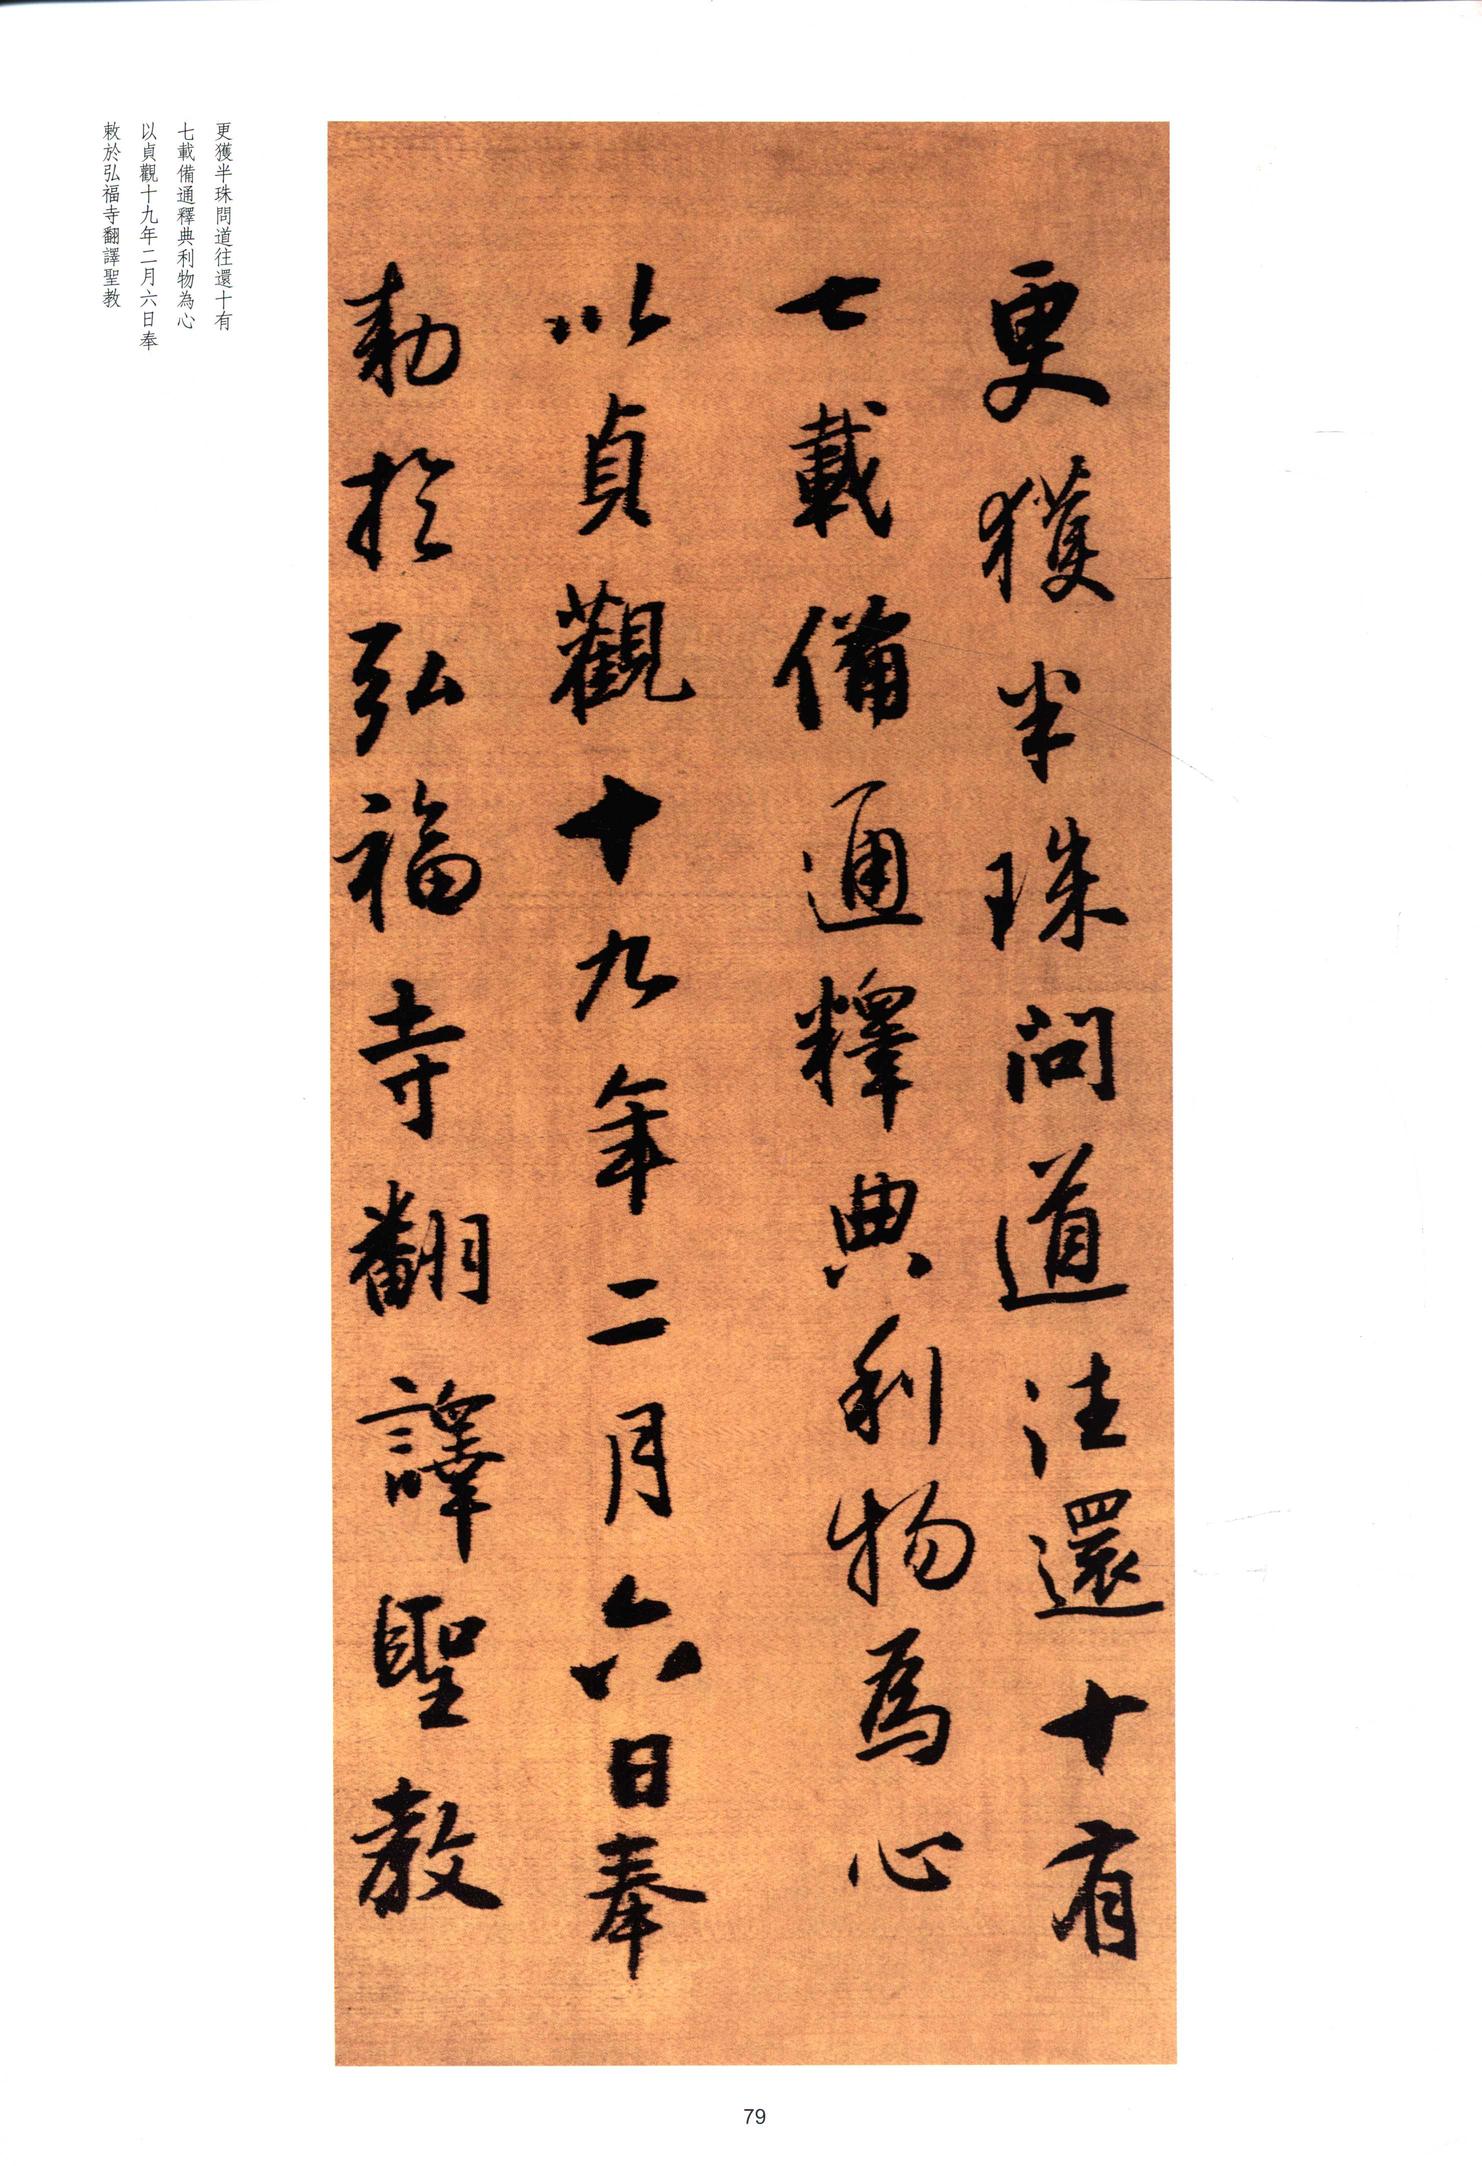 更獲半珠問道往還十有
七載備通釋典利物為心
以貞觀十九年二月六日奉
敕於弘福寺翻譯聖教
更獲半珠問道往還十有
七載備通釋典利物為心
以貞觀十九年二月六日奉
勅於弘福寺翻譯聖教
79